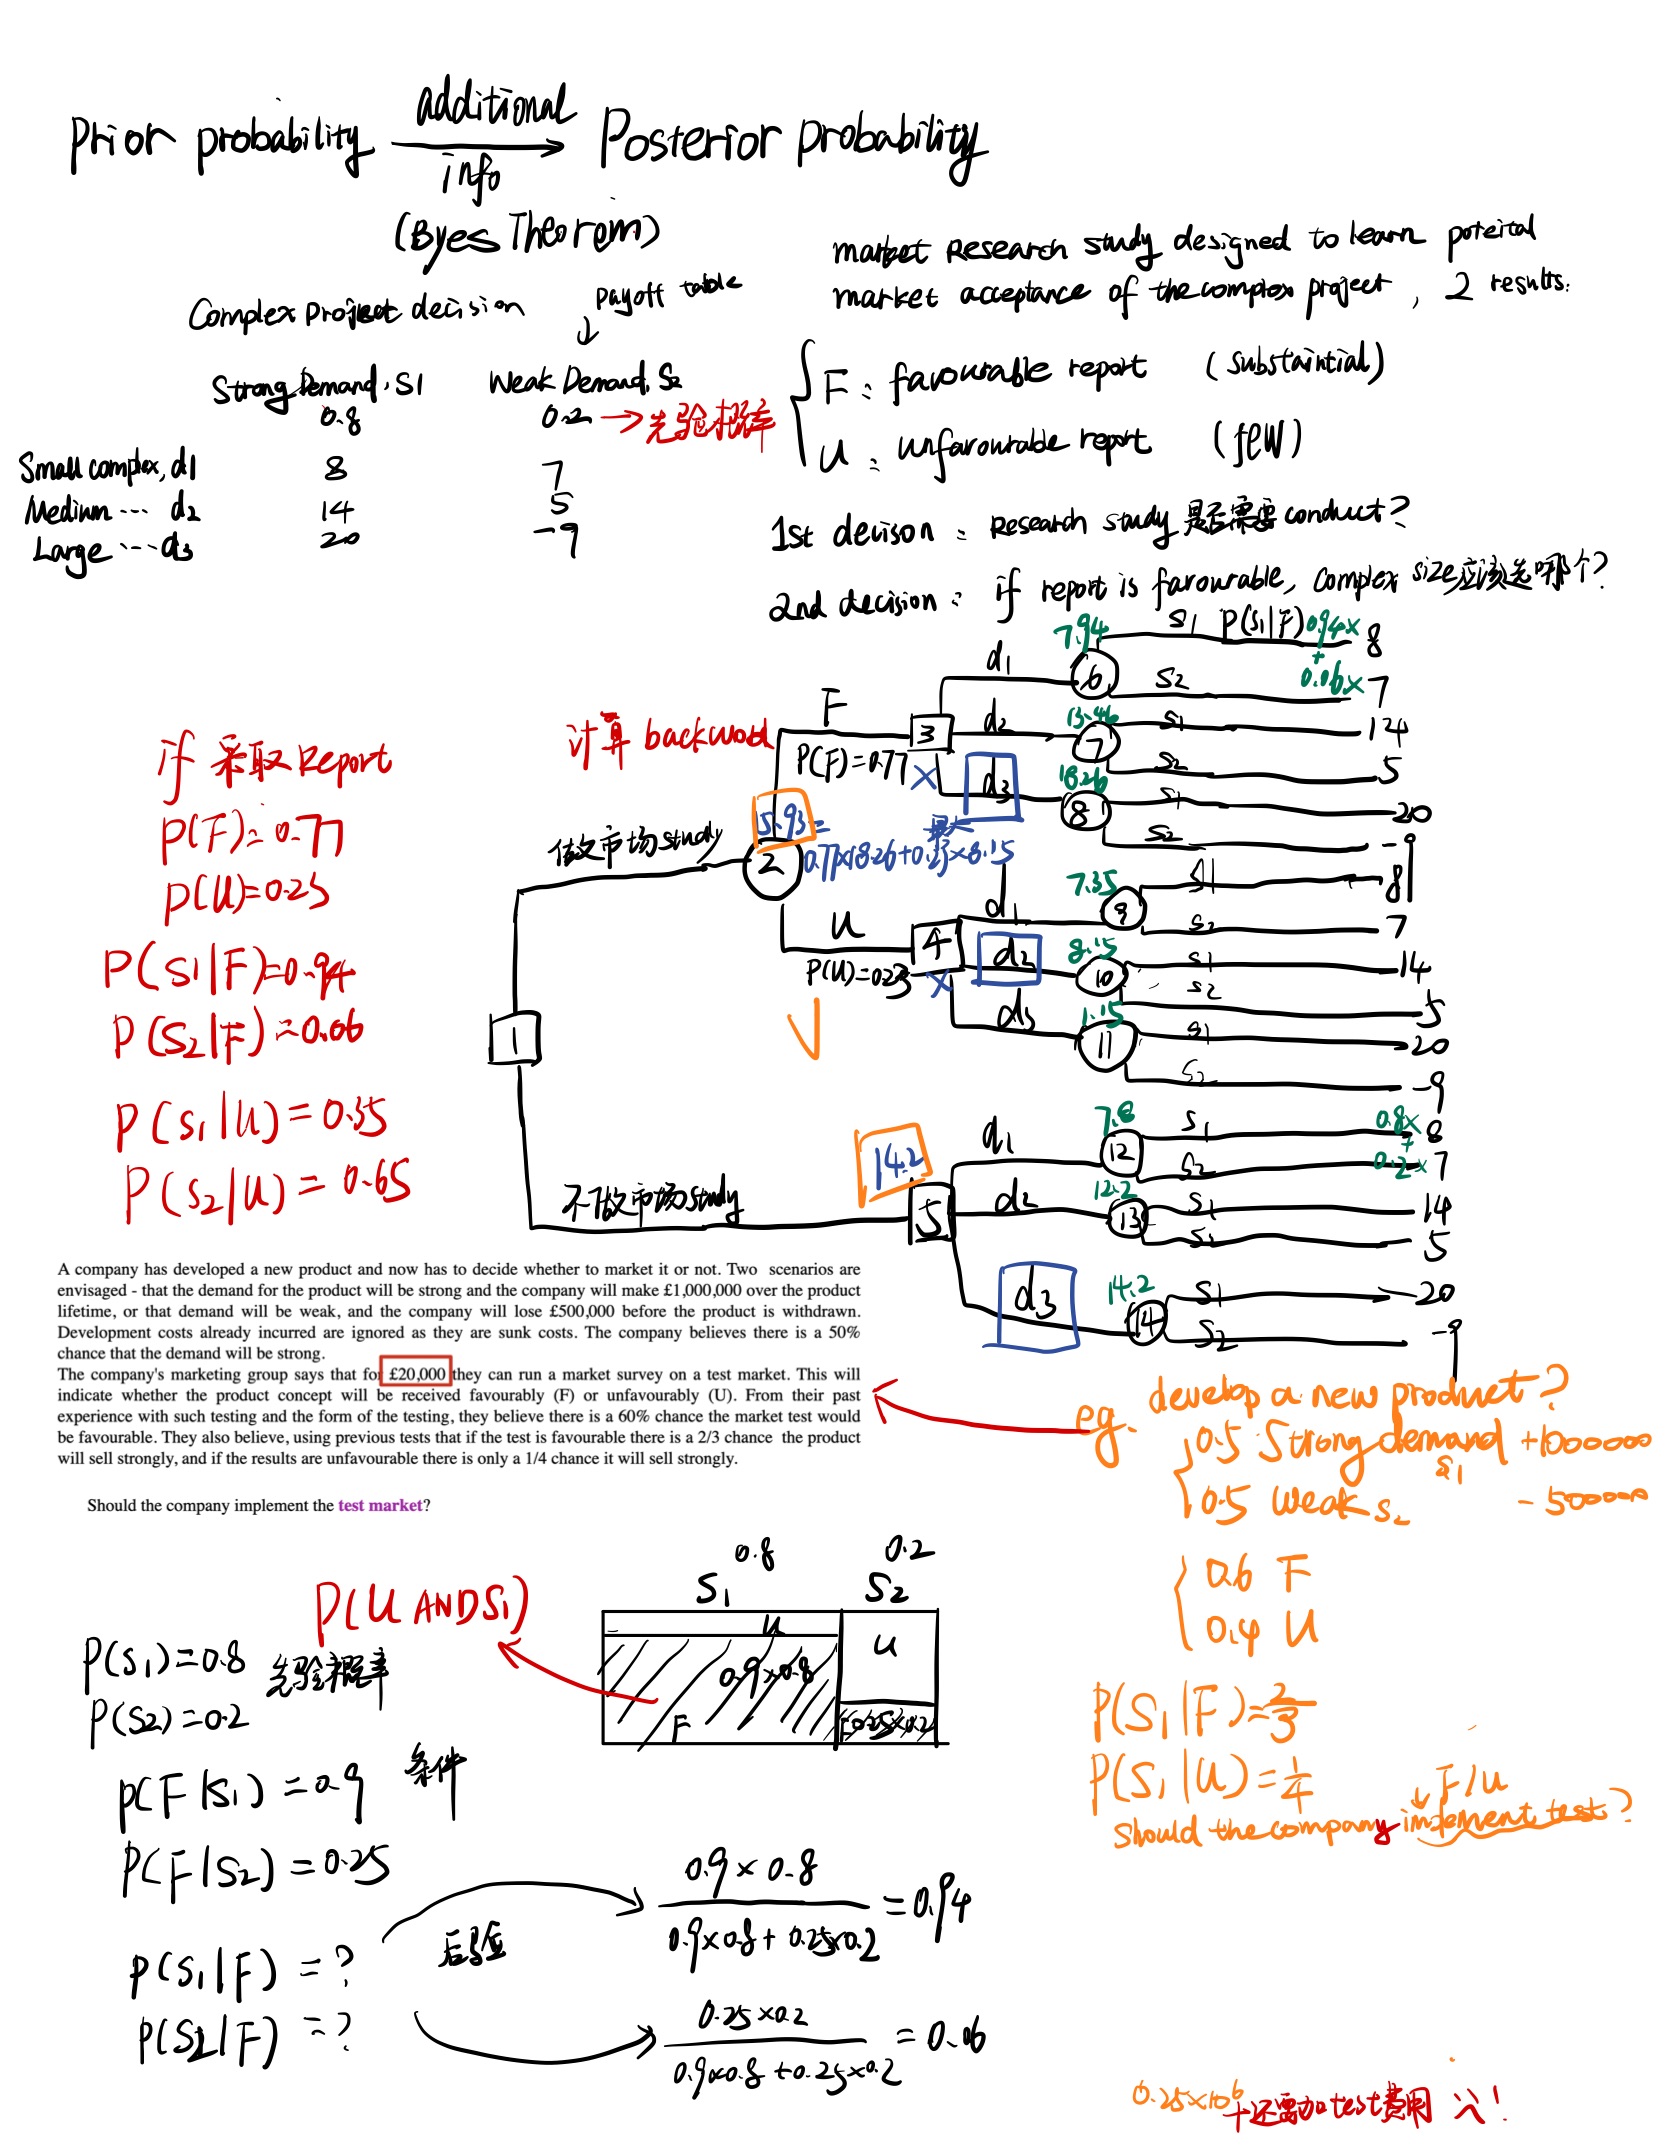 Prior probability additional info Posterior probability
(Byes Theorem)
market Research study designed to learn poteital
market acceptance of the complex project, 2 results.
Complex project decision
payoff table
Strong Demand, S1 Weak Demand, S2
0.8 0.2 → 先验概率
Small complex, d1 8 7
Medium ... d2 14 5
Large ... d3 20 -9
F: favourable report (substaintial)
U: unfavourable report (few)
1st decison: Research study 是否需要 conduct?
2nd decision: if report is favourable, complex size应该选哪个?
if 采取 Report
P(F)=0.77
P(U)=0.23
P(S1|F)=0.94
P(S2|F)=0.06
P(S1|U)=0.35
P(S2|U)=0.65
计算 backword
1
做市场study
2
15.93=
0.77×18.26+0.23×8.15
F
P(F)=0.77
3
最大
U
P(U)=0.23
4
d1 7.94 6 S1 P(S1|F) 0.94× 8
+
S2 0.06× 7
d2 13.46 7 S1 14
S2 5
d3 18.26 8 S1 20
S2 -9
d1 7.35 9 S1 8
S2 7
d2 8.15 10 S1 14
S2 5
d3 1.15 11 S1 20
S2 -9
不做市场study
14.2
5
d1 7.8 12 S1 0.8× 8
+
S2 0.2× 7
d2 12.2 13 S1 14
S2 5
d3 14.2 14 S1 20
S2 -9
A company has developed a new product and now has to decide whether to market it or not. Two scenarios are
envisaged - that the demand for the product will be strong and the company will make £1,000,000 over the product
lifetime, or that demand will be weak, and the company will lose £500,000 before the product is withdrawn.
Development costs already incurred are ignored as they are sunk costs. The company believes there is a 50%
chance that the demand will be strong.
The company's marketing group says that for £20,000 they can run a market survey on a test market. This will
indicate whether the product concept will be received favourably (F) or unfavourably (U). From their past
experience with such testing and the form of the testing, they believe there is a 60% chance the market test would
be favourable. They also believe, using previous tests that if the test is favourable there is a 2/3 chance the product
will sell strongly, and if the results are unfavourable there is only a 1/4 chance it will sell strongly.
Should the company implement the test market?
eg. develop a new product?
0.5 Strong demand S1 +1000000
0.5 Weak S2 -500000
0.6 F
0.4 U
P(S1|F)=2/3
P(S1|U)=1/4
F/U
should the company implement test?
P(U AND S1)
0.8 0.2
S1 S2
U U
0.9×0.8
F F 0.25×0.2
P(S1)=0.8 先验概率
P(S2)=0.2
P(F|S1)=0.9 条件
P(F|S2)=0.25
P(S1|F)=?
P(S2|F)=?
后验
0.9×0.8
0.9×0.8+0.25×0.2
=0.94
0.25×0.2
0.9×0.8+0.25×0.2
=0.06
0.25×10^6
+还需加test费用